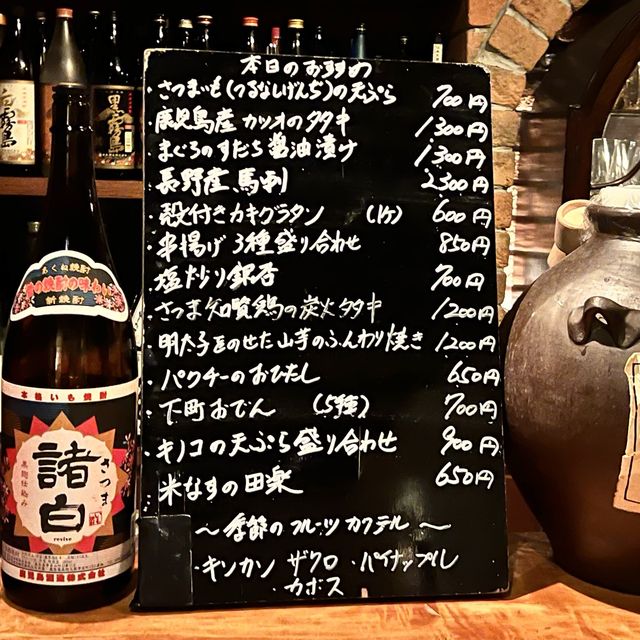 本日のおすすめ
・さつまいも(つるなしげんぢ)の天ぷら 700円
・鹿児島産カツオのタタキ 1300円
まぐろのすだち醤油漬け 1300円
・長野産馬刺 2300円
・殻付きカキグラタン (1ケ) 600円
・串揚げ3種盛り合わせ 850円
塩炒り銀杏 700円
・さつま知覧鶏の炭火タタキ 1200円
明太子をのせた山芋のふんわり焼き 1200円
・パクチーのおひたし 650円
・下町おでん (5種) 700円
・キノコの天ぷら盛り合わせ 900円
米なすの田楽 650円
～季節のフルーツカクテル～
・キンカン ザクロ ・パイナップル
・カボス
あくね焼酎
昔の焼酎の味わい
新焼酎
本格いも焼酎
さつま
諸白
黒麹仕込み
revive
鹿児島酒造株式会社
黒霧島